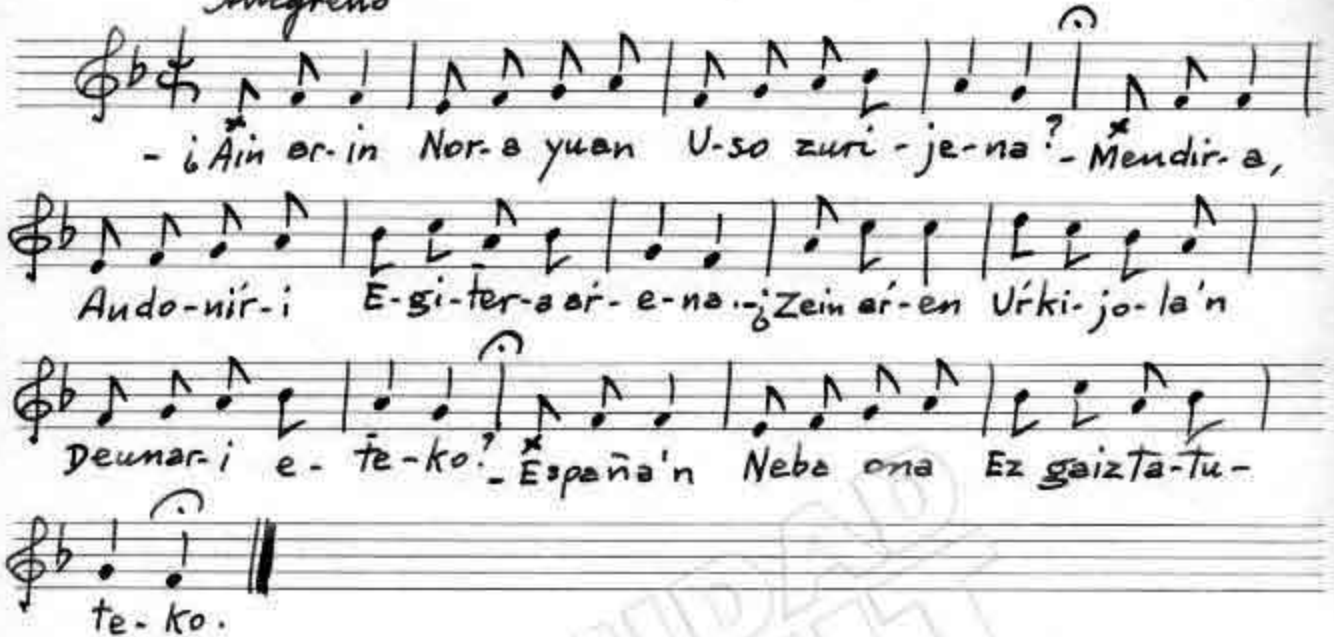 Allegretto
- ¿Ain ar-in Nor-a yuan U-so zuri-je-na? - Mendir-a,
Audo-nír-i E-gi-t̄er-a ar-e-na.-¿Zein aŕ-en Uŕki-jo-la'n
Deunar-i e-t̄e-ko? - España'n Neba ona Ez gaizta-tu-
te-ko.